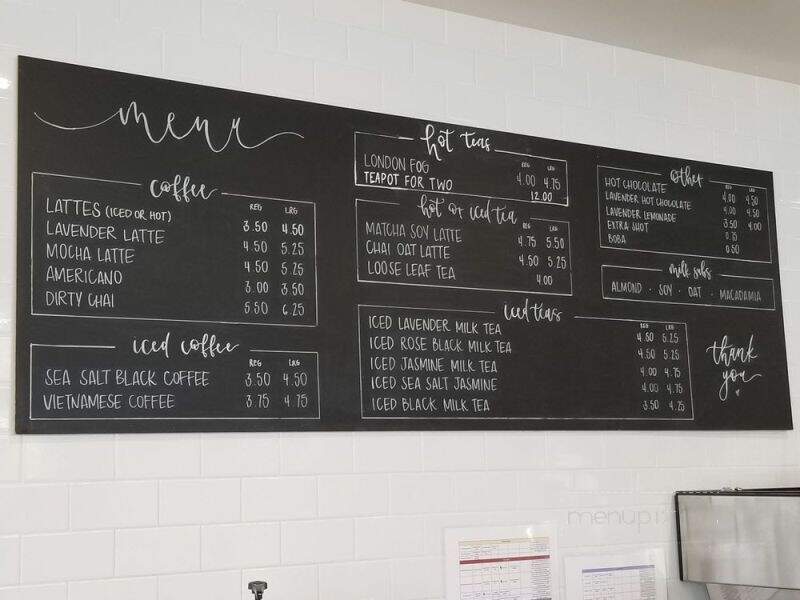 menu
coffee
REG LRG
LATTES (ICED OR HOT) 3.50 4.50
LAVENDER LATTE 4.50 5.25
MOCHA LATTE 4.50 5.25
AMERICANO 3.00 3.50
DIRTY CHAI 5.50 6.25
iced coffee
REG LRG
SEA SALT BLACK COFFEE 3.50 4.50
VIETNAMESE COFFEE 3.75 4.75
hot teas
REG LRG
LONDON FOG 4.00 4.75
TEAPOT FOR TWO 12.00
hot or iced tea
REG LRG
MATCHA SOY LATTE 4.75 5.50
CHAI OAT LATTE 4.50 5.25
LOOSE LEAF TEA 4.00
iced teas
REG LRG
ICED LAVENDER MILK TEA 4.50 5.25
ICED ROSE BLACK MILK TEA 4.50 5.25
ICED JASMINE MILK TEA 4.00 4.75
ICED SEA SALT JASMINE 4.00 4.75
ICED BLACK MILK TEA 3.50 4.25
other
REG LRG
HOT CHOCOLATE 4.00 4.50
LAVENDER HOT CHOCOLATE 4.00 4.50
LAVENDER LEMONADE 3.50 4.00
EXTRA SHOT 0.75
BOBA 0.50
milk subs
ALMOND · SOY · OAT · MACADAMIA
thank
you